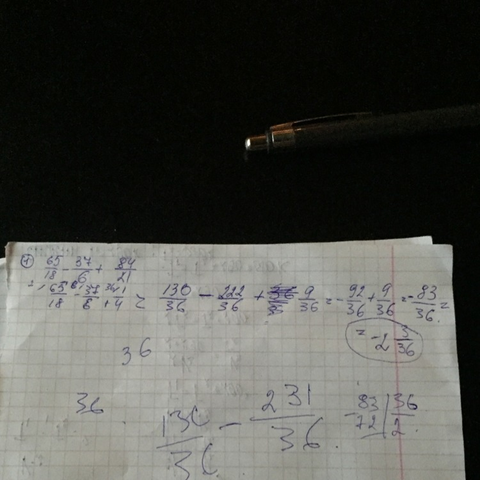 65/18 - 37/6 + 84/21
= 65/18 - 37/6 + 1/4 = 130/36 - 222/36 + 9/36 = -92/36 + 9/36 = -83/36 =
= -2 3/36
36
36
130/36 - 231/36
-83 | 36
72 | 2